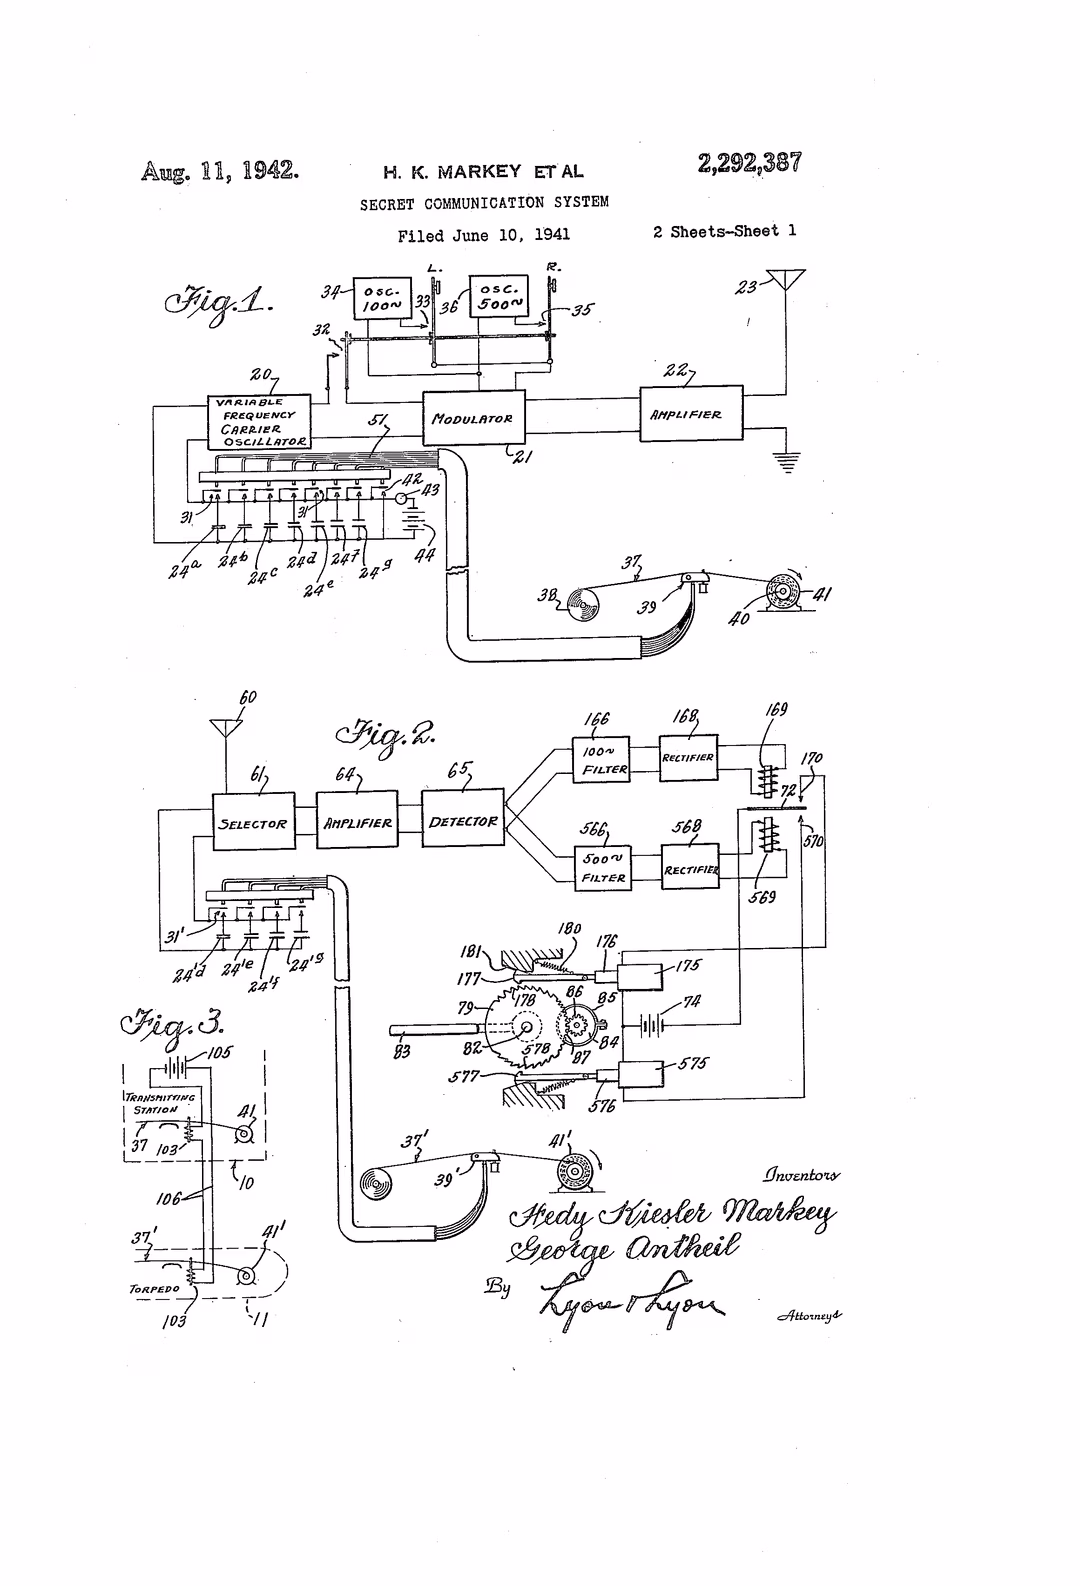 Aug. 11, 1942.
H. K. MARKEY ET AL
2,292,387
SECRET COMMUNICATION SYSTEM
Filed June 10, 1941
2 Sheets-Sheet 1
Fig. 1.
L.
R.
34
OSC.
100~
33
36
OSC.
500~
35
23
32
20
VARIABLE
FREQUENCY
CARRIER
OSCILLATOR
51
MODULATOR
21
22
AMPLIFIER
31
31
42
43
44
24a
24b
24c
24d
24e
24f
24g
37
38
39
40
41
60
Fig. 2.
61
SELECTOR
64
AMPLIFIER
65
DETECTOR
166
100~
FILTER
168
RECTIFIER
169
170
72
566
500~
FILTER
568
RECTIFIER
569
570
31'
24'd
24'e
24'f
24'g
181
180
176
177
175
79
178
86
85
74
83
82
578
87
84
577
576
575
37'
39'
41'
Fig. 3.
105
TRANSMITTING
STATION
37
103
41
10
106
37'
41'
TORPEDO
103
11
Inventors
Hedy Kiesler Markey
George Antheil
By
Lyon & Lyon
Attorneys